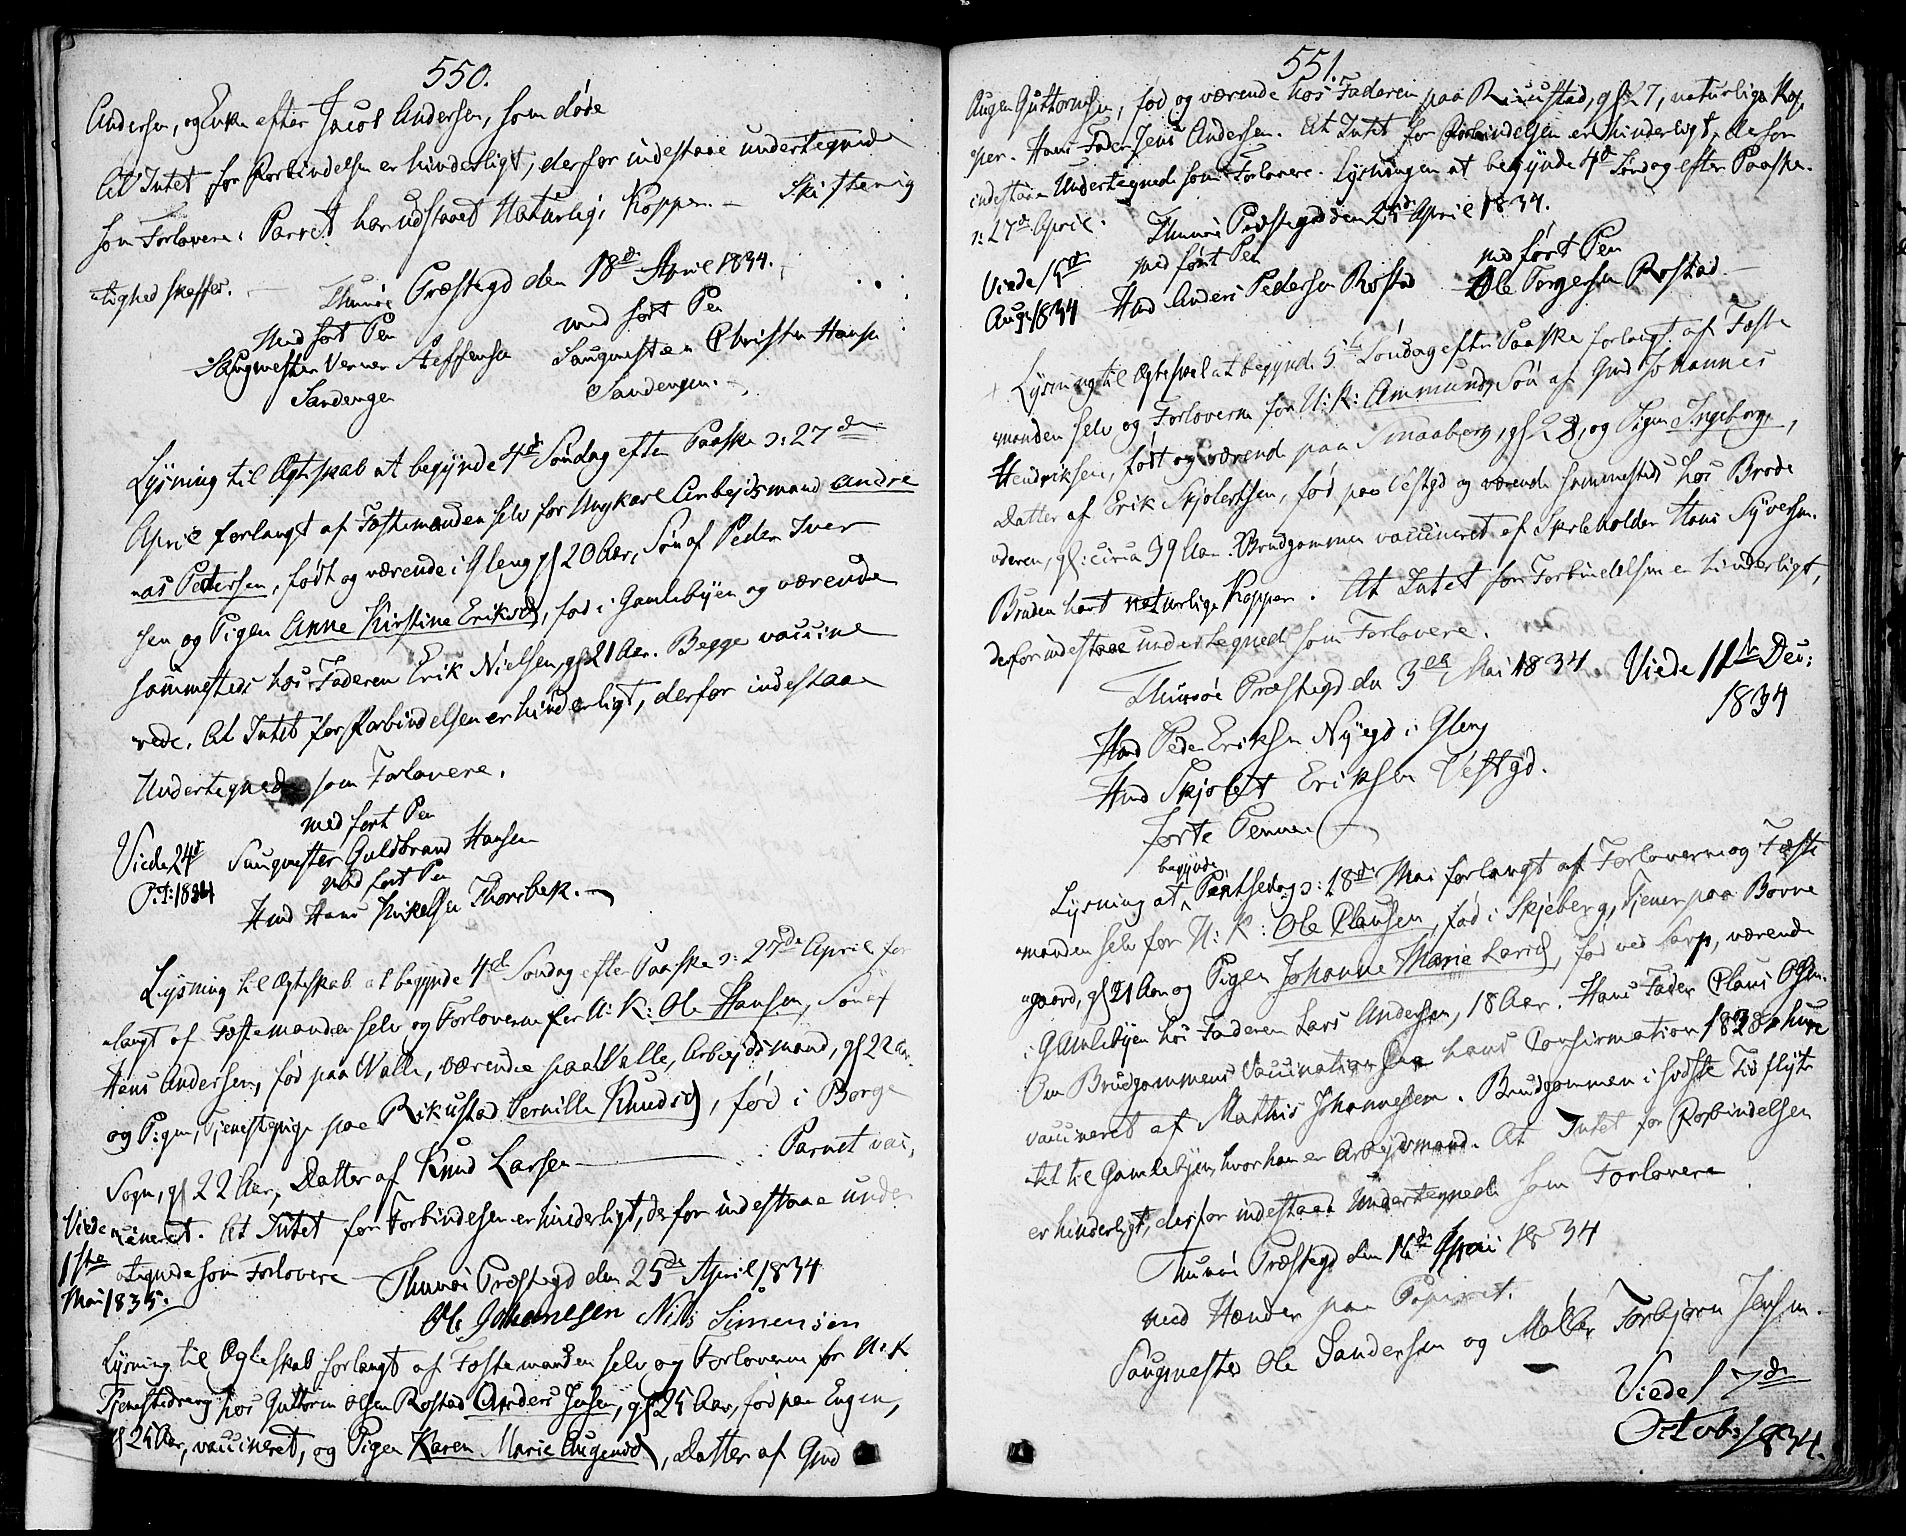 550.
Andersen, og Enke efter Jacob Andersen, som døde
At Intet for Forbindelsen er hinderligt, derfor indestaae undertegnede
som Forlovere. Parret har udstaaet Naturlige Kopper. — Skifterig
tighed skeffes. — Thunøe Præstegd den 18de April 1834.
Med ført Pen med ført Pen
Saugmester Verner Steffensen Saugmester Christen Hansen
Sandengen Sandengen.
Lysning til Ægteskab at begynde 4de Søndag efter Paaske ɔ: 27de
April forlangt af Fæstemanden selv for Ungkarl Arbejdsmand Andre
as Petersen, født og værende i Gleng gl 20 Aar, Søn af Peder Iver
sen og Pigen Anne Kirstine Eriksd, fød i Gamlebyen og værende
sammesteds hos Faderen Erik Nielsen, gl 21 Aar. Begge vaccine
rede. At Intet for Forbindelsen er hinderligt, derfor indestaae
Undertegnede som Forlovere.
med ført Pen
Viede 24de Saugmester Guldbrand Hansen
Oct: 1834 med ført Pen
Hmd Hans Mikelsen Thorsbek. —
Lysning til Ægteskab at begynde 4de Søndag efter Paaske ɔ: 27de April for
langt af Fæstemanden selv og Forloverne for U: K: Ole Hansen, Søn af
Hans Andersen, fød paa Valle, værende paa Valle, Arbejdsmand, gl 22 Aar
og Pigen, Tjenestepige paa Rikustad Pernille Knudsd, fød i Borge
Sogn, gl 22 Aar, Datter af Knud Larsen — Parret vac,
Viede cineret. At Intet for Forbindelsen er hinderligt, derfor indestaae under
1ste tegnede som Forlovere — Thunøe Præstegd den 25de April 1834
Mai 1835. Ole Johannesen Nils Simensen
Lysning til Ægteskab forlangt af Fæstemanden selv og Forloverne for U: K
Tjenestedreng hos Guttorm Olsen Rostad Anders Jensen, gl 25 Aar, fød paa Engen,
gl 25 Aar, vaccineret, og Pigen Karen Marie Augensd, Datter af Gmd
551.
Augen Guttormsen, fød og værende hos Faderen paa Rikustad, gl 27, naturlige Kop,
per. Hans Fader Jens Andersen. At Intet for Forbindelsen er hinderligt, derfor
indestaae Undertegnede som Forlovere. Lysningen at begynde 4de Søndag efter Paaske.
ɔ: 27de April. Thunøe Præstegd den 25de April 1834.
Viede 15de med ført Pen med ført Pen
Aug: 1834 Hmd Anders Pedersen Rostad Ole Torgersen Rostad —
Lysning til Ægteskab at begynde 5te Søndag efter Paaske forlangt af Fæste
manden selv og Forloverne for U: K: Ammund, Søn af Gmd Johannes
Hendriksen, født og værende paa Smaaberg, gl 28, og Pigen Ingeborg,
Datter af Erik Skjolertsen, fød paa Vestgd og værende sammesteds hos Brode
deren, gl: circa 39 Aar. Brudgommen vaccineret af Skoleholder Hans Syversen.
Bruden havt naturlige Kopper. At Intet for Forbindelsen er hinderligt,
derfor indestaae undertegnede som Forlovere.
Thunøe Præstegd den 3die Mai 1834 Viede 11te Dec:
1834
Hmd Peder Eriksen Nygd i Gleng
Hmd Skjolert Eriksen Vestgd.
førte Pennen
begynde
Lysning at Pintsedag ɔ: 18de Mai forlangt af Forloverne og Fæste
manden selv for U: K: Ole Clausen, fød i Skjeberg, Tjener paa Borre
gaard, gl 21 Aar og Pigen Johanne Marie Larsd, fød ved Sarp, værende
i Gamlebyen hos Faderen Lars Andersen, 18 Aar. Hans Fader Claus Olsen.
Om Brudgommens Vaccination hans Confirmation 1828
vaccineret af Mathis Johannesen. Brudgommen i sidste Tid flyt
tet til Gamlebyen, hvor han er Arbejdsmand. At Intet for Forbindelsen
er hinderligt, derfor indestaae Undertegnede som Forlovere
Thunøe Præstegd den 16de Mai 1834
med Hænder paa Papiret.
Saugmester Ole Gundersen og Møller Torbjørn Jensen.
Viede 17de
Octob: 1834.